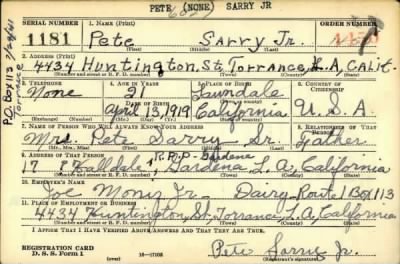 PETE (NONE) SARRY JR
SERIAL NUMBER 1. NAME (Print)
1181 Pete Sarry Jr.
(First) (Middle) (Last)
2. ADDRESS (Print)
4434 Huntington St. Torrance, L.A, Calif.
(Number and street or R. F. D. number) (Town) (County) (State)
3. TELEPHONE 4. AGE IN YEARS 5. PLACE OF BIRTH 6. COUNTRY OF CITIZENSHIP
None 21 Lawndale
DATE OF BIRTH
April 13, 1919 California U. S. A
(Exchange) (No.) (Mo.) (Day) (Yr.) (State or country)
7. NAME OF PERSON WHO WILL ALWAYS KNOW YOUR ADDRESS RELATIONSHIP OF THAT PERSON
Mr. Pet Sarry Sr. Father
(Mr., Mrs., Miss) (First) (Middle) (Last)
9. ADDRESS OF THAT PERSON
Gardena
17 Gardena L. A, California
(Number and street or R. F. D. number) (Town) (County) (State)
10. EMPLOYER'S NAME
Joe Moniz Jr. Dairy-Route 1 Box 113
11. PLACE OF EMPLOYMENT OR BUSINESS
4434 Huntington, St, Torrance, L.A, California
(Number and street or R. F. D. number) (Town) (County) (State)
I AFFIRM THAT I HAVE VERIFIED ABOVE ANSWERS AND THAT THEY ARE TRUE.
REGISTRATION CARD
D. S. S. Form 1
Pete Sarry Jr.
(Registrant's signature)
P.O. Box 113
Torrance